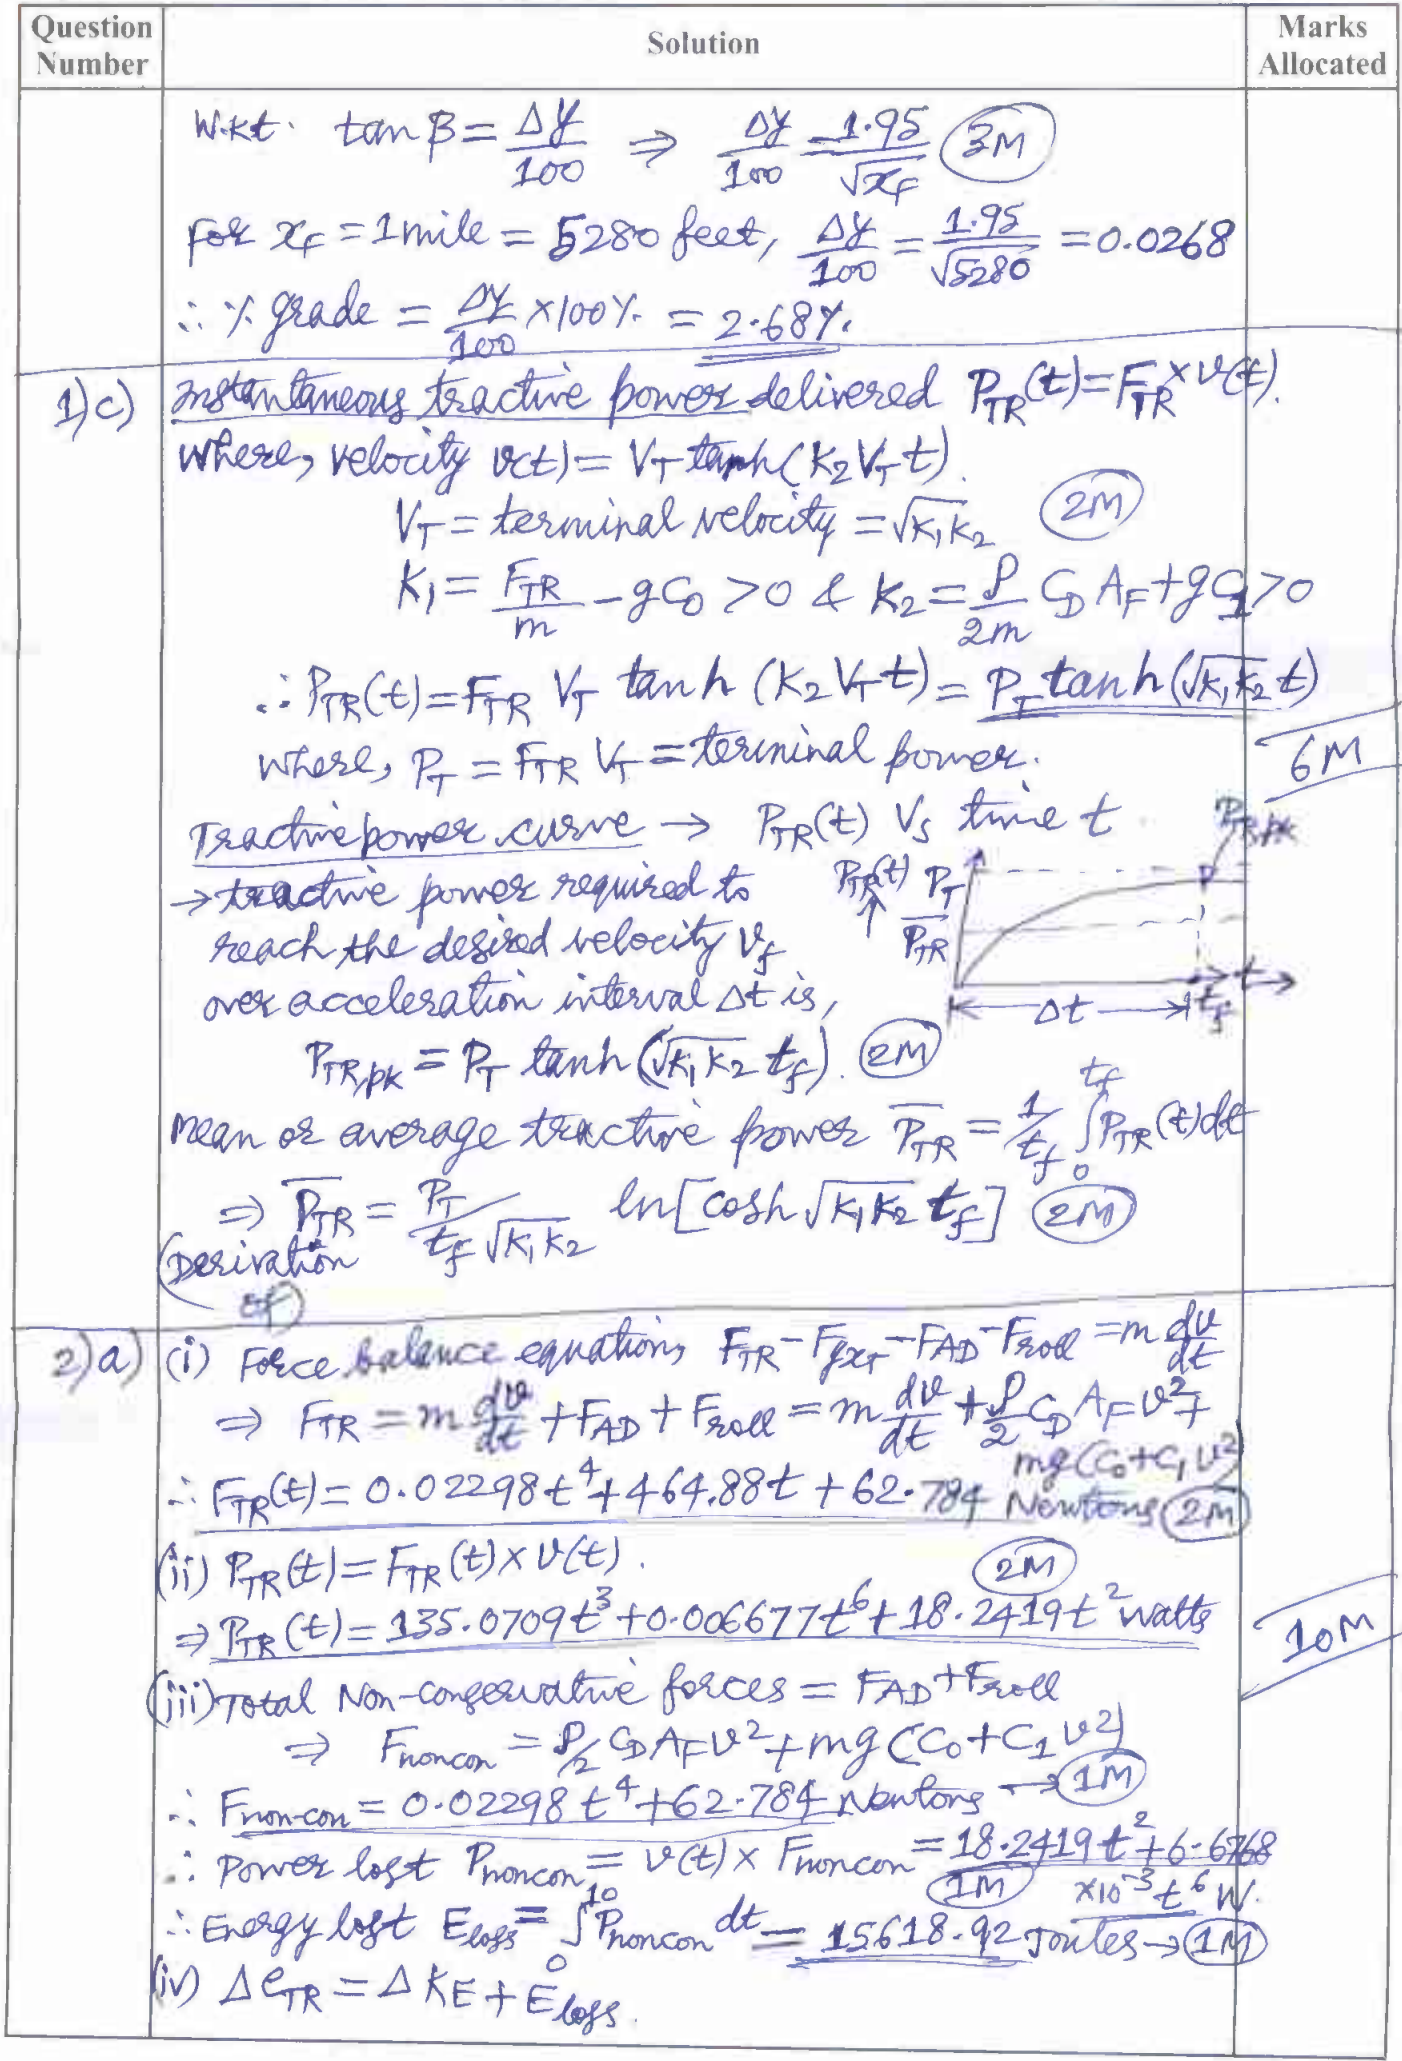 Question Number
Solution
Marks Allocated
W.k.t. tan β = Δy/100 ⇒ Δy/100 = 1.95/√x_F (3M)
For x_F = 1 mile = 5280 feet, Δy/100 = 1.95/√5280 = 0.0268
∴ % grade = Δy/100 × 100% = 2.68%
1)c) Instantaneous tractive power delivered P_TR(t) = F_TR × v(t).
Where, velocity v(t) = V_T tanh(K₂V_T t).
V_T = terminal velocity = √K₁K₂ (2M)
K₁ = F_TR/m - gC₀ > 0 & K₂ = ρ/2m C_D A_F + gC₁ > 0
∴ P_TR(t) = F_TR V_T tanh (K₂V_T t) = P_T tanh(√K₁K₂ t)
where, P_T = F_TR V_T = terminal power.
6M
Tractive power curve → P_TR(t) Vs time t
→ tractive power required to
reach the desired velocity v_f
over acceleration interval Δt is,
P_TR(t) ↑ P_T
P̅_TR
P_TR,pk
t
Δt
t_f
P_TR,pk = P_T tanh(√K₁K₂ t_f). (2M)
Mean or average tractive power P̅_TR = 1/t_f ∫₀^t_f P_TR(t)dt
⇒ P̅_TR = P_T/t_f√K₁K₂ ln[cosh √K₁K₂ t_f] (2M)
(Derivation
of)
2)a) (i) Force balance equation, F_TR - F_gxT - F_AD - F_roll = m dv/dt
⇒ F_TR = m dv/dt + F_AD + F_roll = m dv/dt + ρ/2 C_D A_F v² +
mg(C₀+C₁v²)
∴ F_TR(t) = 0.02298t⁴ + 464.88t + 62.784 Newtons (2M)
(ii) P_TR(t) = F_TR(t) × v(t). (2M)
⇒ P_TR(t) = 135.0709t³ + 0.006677t⁶ + 18.2419t² watts
10M
(iii) Total Non-conservative forces = F_AD + F_roll
⇒ F_noncon = ρ/2 C_D A_F v² + mg(C₀+C₁v²)
∴ F_non-con = 0.02298t⁴ + 62.784 Newtons → (1M)
∴ Power lost P_noncon = v(t) × F_noncon = 18.2419t² + 6.6768
(1M) ×10⁻³t⁶ W.
∴ Energy lost E_loss = ∫₀¹⁰ P_noncon dt = 15618.92 Joules → (1M)
(iv) Δe_TR = ΔKE + E_loss.